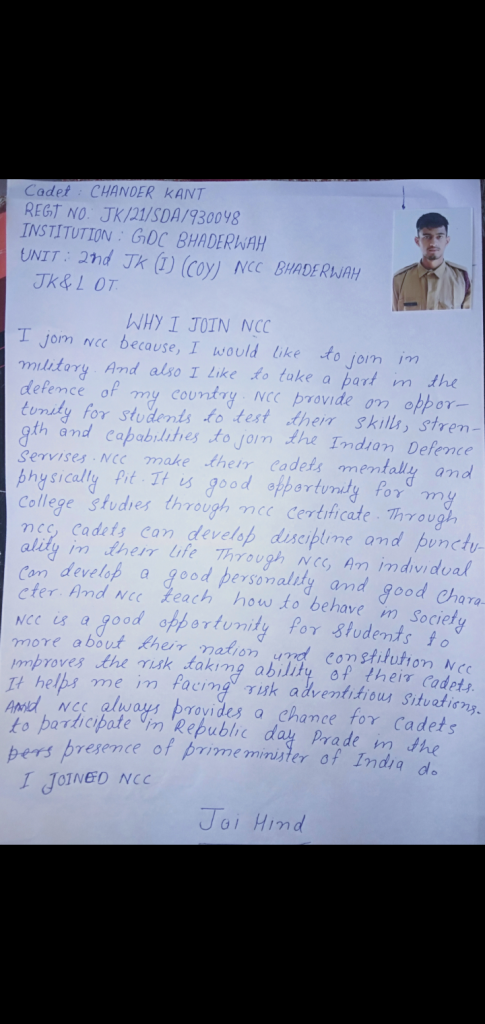 Cadet : CHANDER KANT
REGT NO. JK/21/SDA/930048
INSTITUTION : GDC BHADERWAH
UNIT : 2nd JK (I) (COY) NCC BHADERWAH
JK& L DT.
WHY I JOIN NCC
I join NCC because, I would like to join in
military. And also I Like to take a part in the
defence of my country. NCC provide on oppor-
tunity for students to test their skills, stren-
gth and capabilities to join the Indian Defence
servises. NCC make their cadets mentally and
physically fit. It is good opportunity for my
College studies through ncc certificate. Through
ncc, Cadets can develop discipline and punctu-
ality in their life Through NCC, An individual
Can develop a good personality and good chara-
cter. And NCC teach how to behave in Society
NCC is a good opportunity for students to
more about their nation and constitution NCC
improves the risk taking ability of their cadets.
It helps me in facing risk adventitious situations.
And NCC always provides a chance for Cadets
to participate in Republic day Prade in the
presence of primeminister of India do
I JOINED NCC
Jai Hind